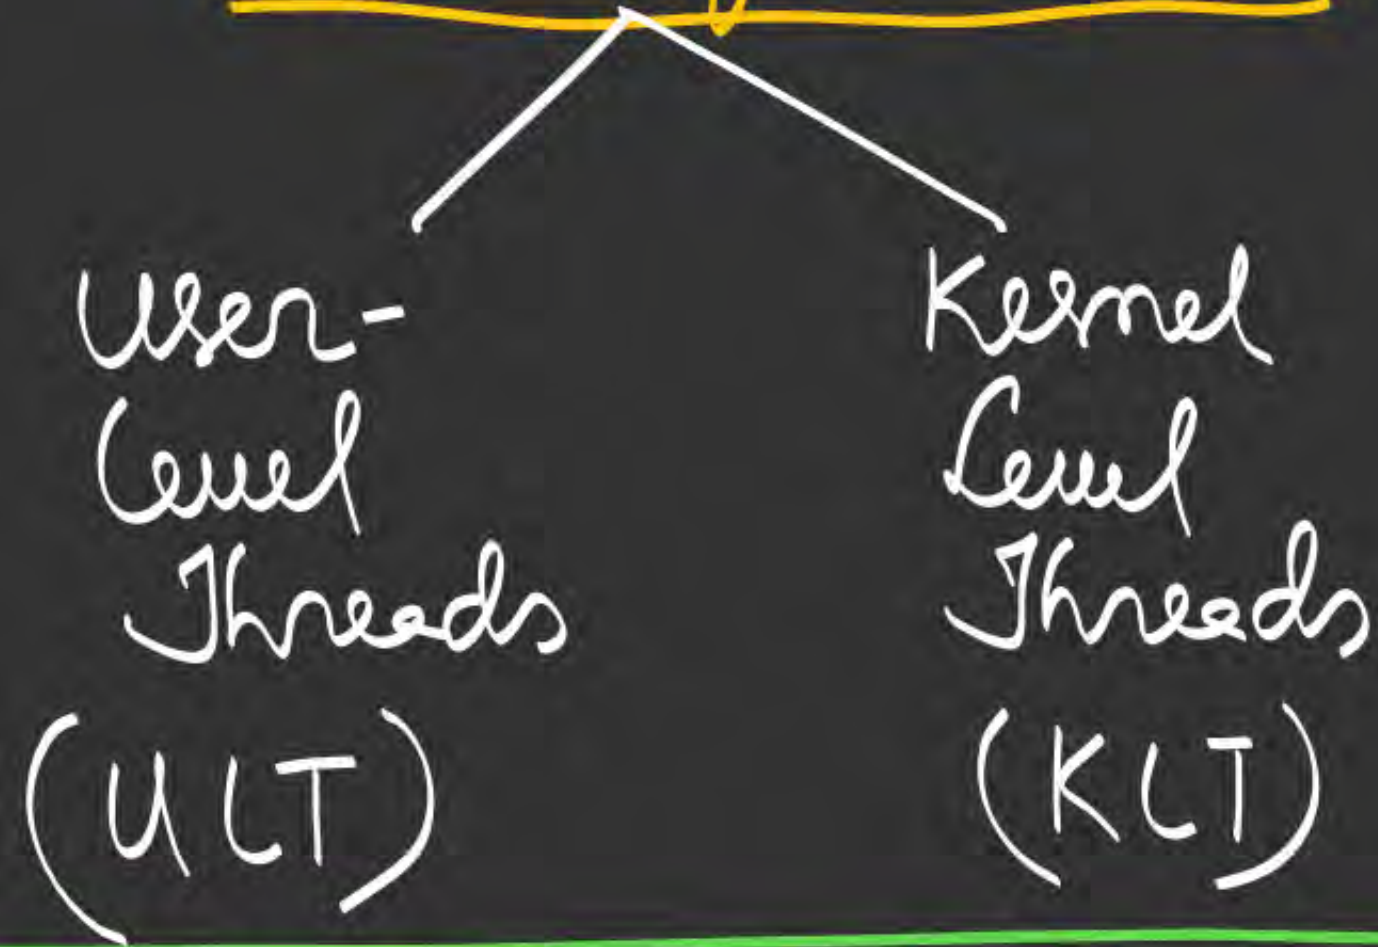 User-
Level
Threads
(ULT)
Kernel
Level
Threads
(KLT)